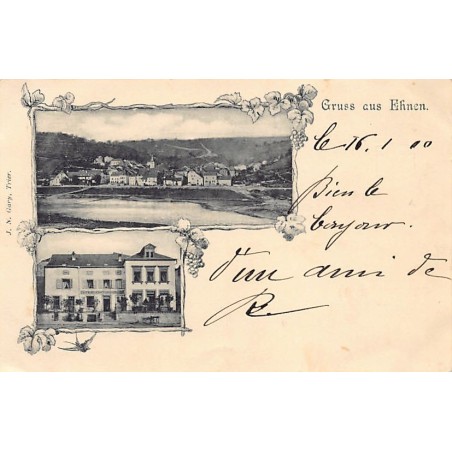 Gruss aus Ehnen.
16. 1 00
Bien le
bonjour
d'un ami de
R.
J. N. Gary, Trier.